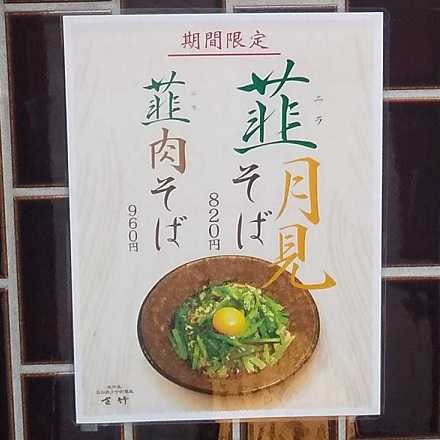 期間限定
韮
ニラ
そば
月見
820円
韮肉そば
ニラ
960円